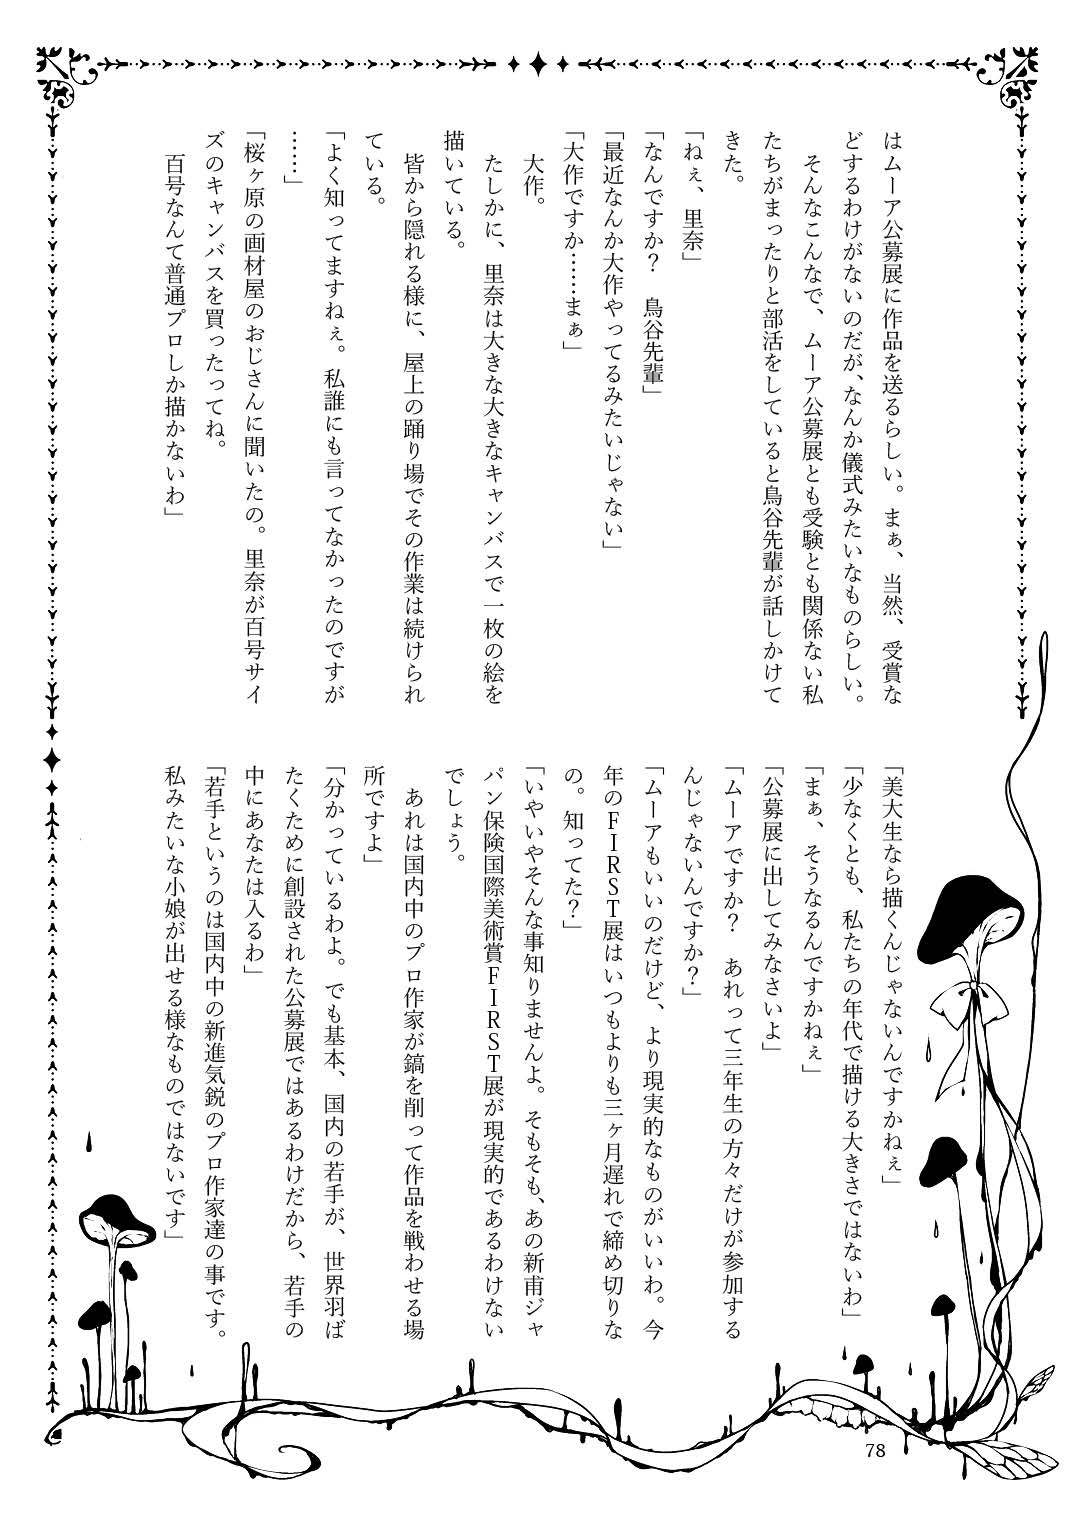 はムーア公募展に作品を送るらしい。まぁ、当然、受賞な
どするわけがないのだが、なんか儀式みたいなものらしい。
　そんなこんなで、ムーア公募展とも受験とも関係ない私
たちがまったりと部活をしていると鳥谷先輩が話しかけて
きた。
「ねぇ、里奈」
「なんですか？　鳥谷先輩」
「最近なんか大作やってるみたいじゃない」
「大作ですか……まぁ」
　大作。
　たしかに、里奈は大きな大きなキャンバスで一枚の絵を
描いている。
　皆から隠れる様に、屋上の踊り場でその作業は続けられ
ている。
「よく知ってますねぇ。私誰にも言ってなかったのですが
……」
「桜ヶ原の画材屋のおじさんに聞いたの。里奈が百号サイ
ズのキャンバスを買ったってね。
　百号なんて普通プロしか描かないわ」
「美大生なら描くんじゃないんですかねぇ」
「少なくとも、私たちの年代で描ける大きさではないわ」
「まぁ、そうなるんですかねぇ」
「公募展に出してみなさいよ」
「ムーアですか？　あれって三年生の方々だけが参加する
んじゃないんですか？」
「ムーアもいいのだけど、より現実的なものがいいわ。今
年のＦＩＲＳＴ展はいつもよりも三ヶ月遅れで締め切りな
の。知ってた？」
「いやいやそんな事知りませんよ。そもそも、あの新甫ジャ
パン保険国際美術賞ＦＩＲＳＴ展が現実的であるわけない
でしょう。
　あれは国内中のプロ作家が鎬を削って作品を戦わせる場
所ですよ」
「分かっているわよ。でも基本、国内の若手が、世界羽ば
たくために創設された公募展ではあるわけだから、若手の
中にあなたは入るわ」
「若手というのは国内中の新進気鋭のプロ作家達の事です。
私みたいな小娘が出せる様なものではないです」
78